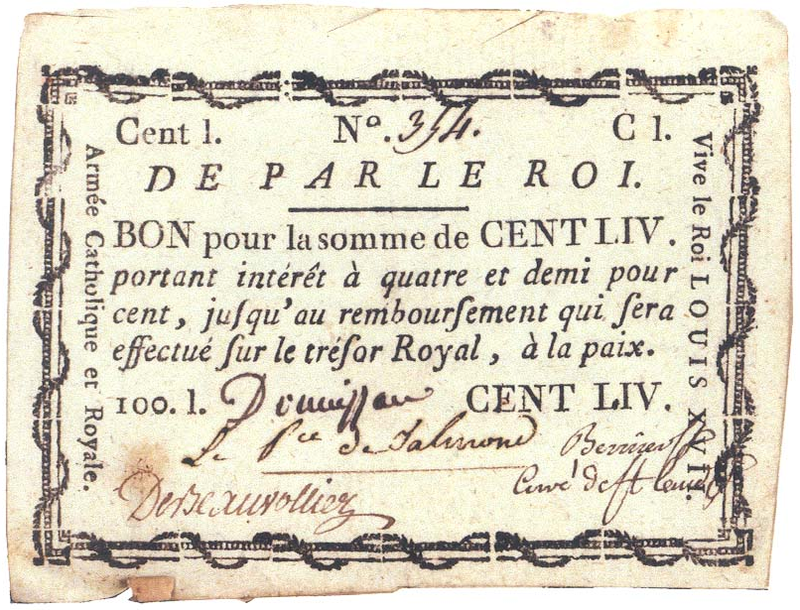 Cent l. N°. 354. C l.
DE PAR LE ROI.
BON pour la somme de CENT LIV.
portant intérêt à quatre et demi pour
cent, juſqu'au rembourſement qui ſera
effectué ſur le tréſor Royal, à la paix.
100. l. Donnissan CENT LIV.
Le Pce de Talmond
DeBeauvollier
Curé de St
Armée Catholique et Royale.
Vive le Roi LOUIS XVII.